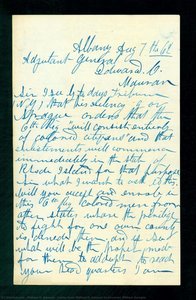 Albany Aug 7th 62
Adjutant General
Edward C.
Mauran
Sir I see by to days Tribune
(N.Y.) that his excelency Gov
Sprague orders that the
6th this "will consist entirely
of colored citizens" and that
enlistments will commence
immediately in the state of
Rhode Island for that purpose
Now what I want to ask is this
will you accept and enroll in
this 6th Rg Colored men from
other states where the privilege
to fight for one own country
is denied them and if so
what will be the plan made
for them to adopt to reach
your Head quarters I am